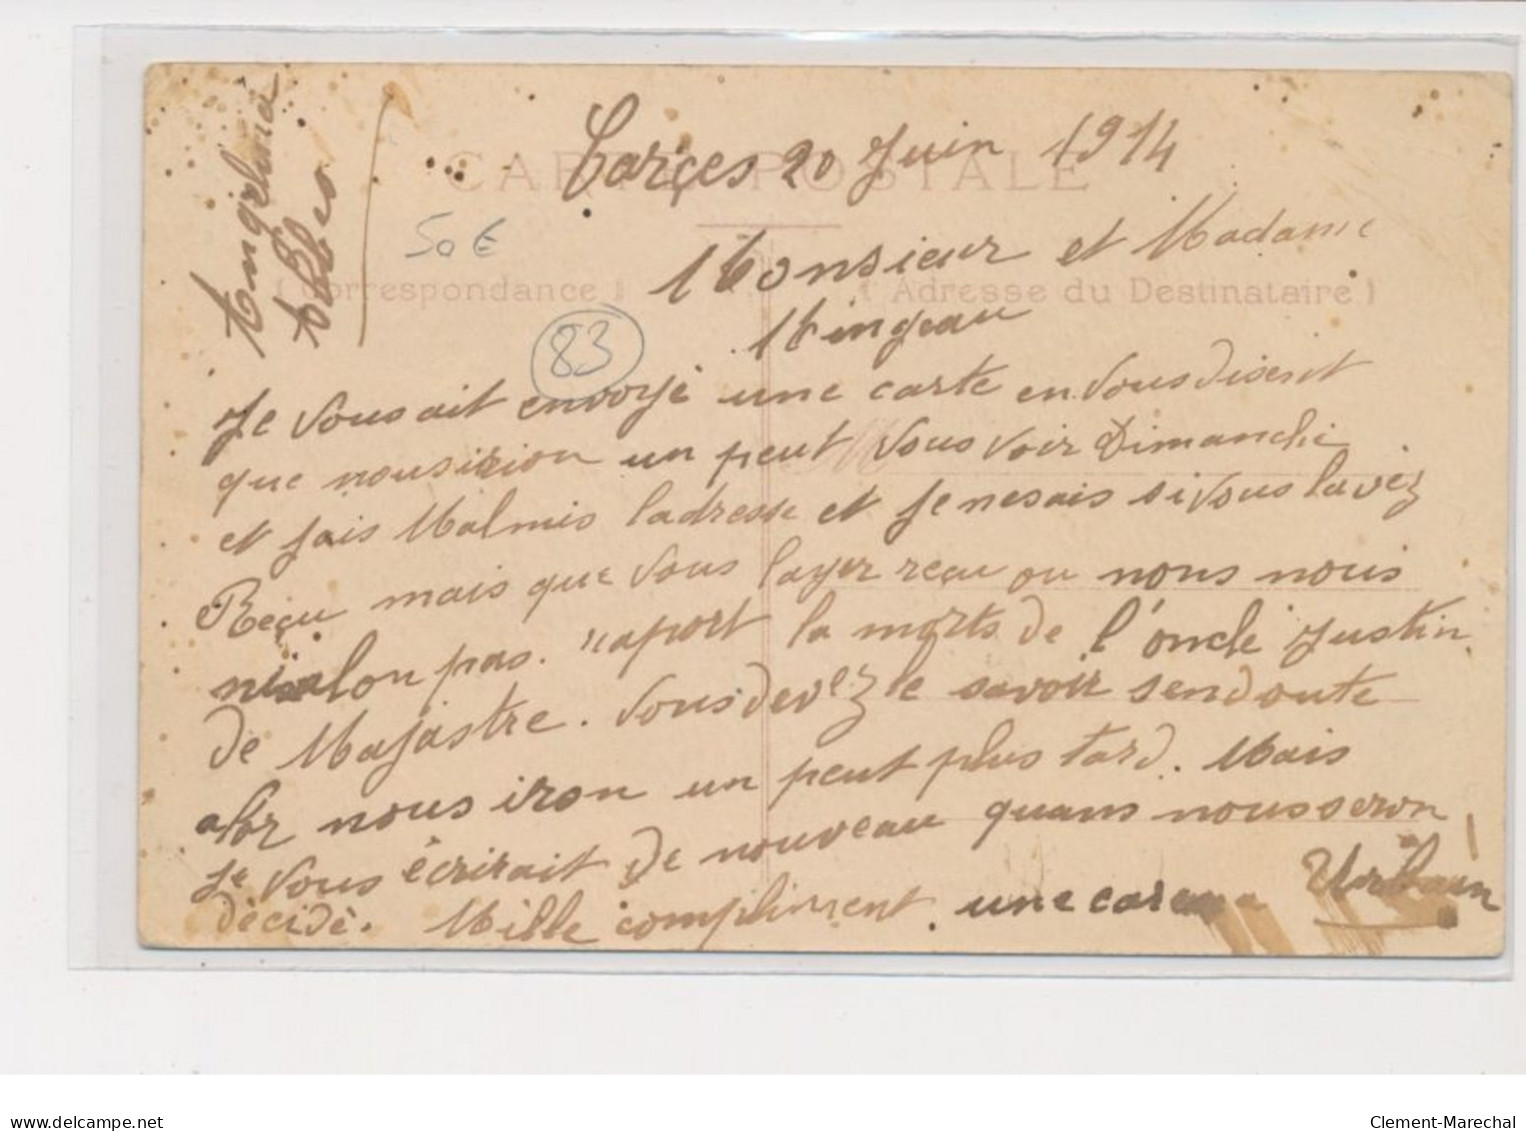 CARTE POSTALE
Carçes 20 Juin 1914
50€
Monsieur et Madame
(Correspondance) (Adresse du Destinataire)
Mingeau
83
Je vous ait envoyé une carte en vous disent
que nous irion un peut vous voir Dimanche
et jais Malmis ladresse et Je ne sais si vous lavéz
Reçu mais que vous layer reçu ou nons nous
ni alon pas. raport la morts de l'oncle Justin
de Majastre. vous devez le savoir sendoute
alor nous iron un peut plus tard. Mais
Je vous écrirait de nouveau quans nous seron
décidé. Mille compliment. une
Urbain
Angelina
delcampe.net
Clement-Marechal